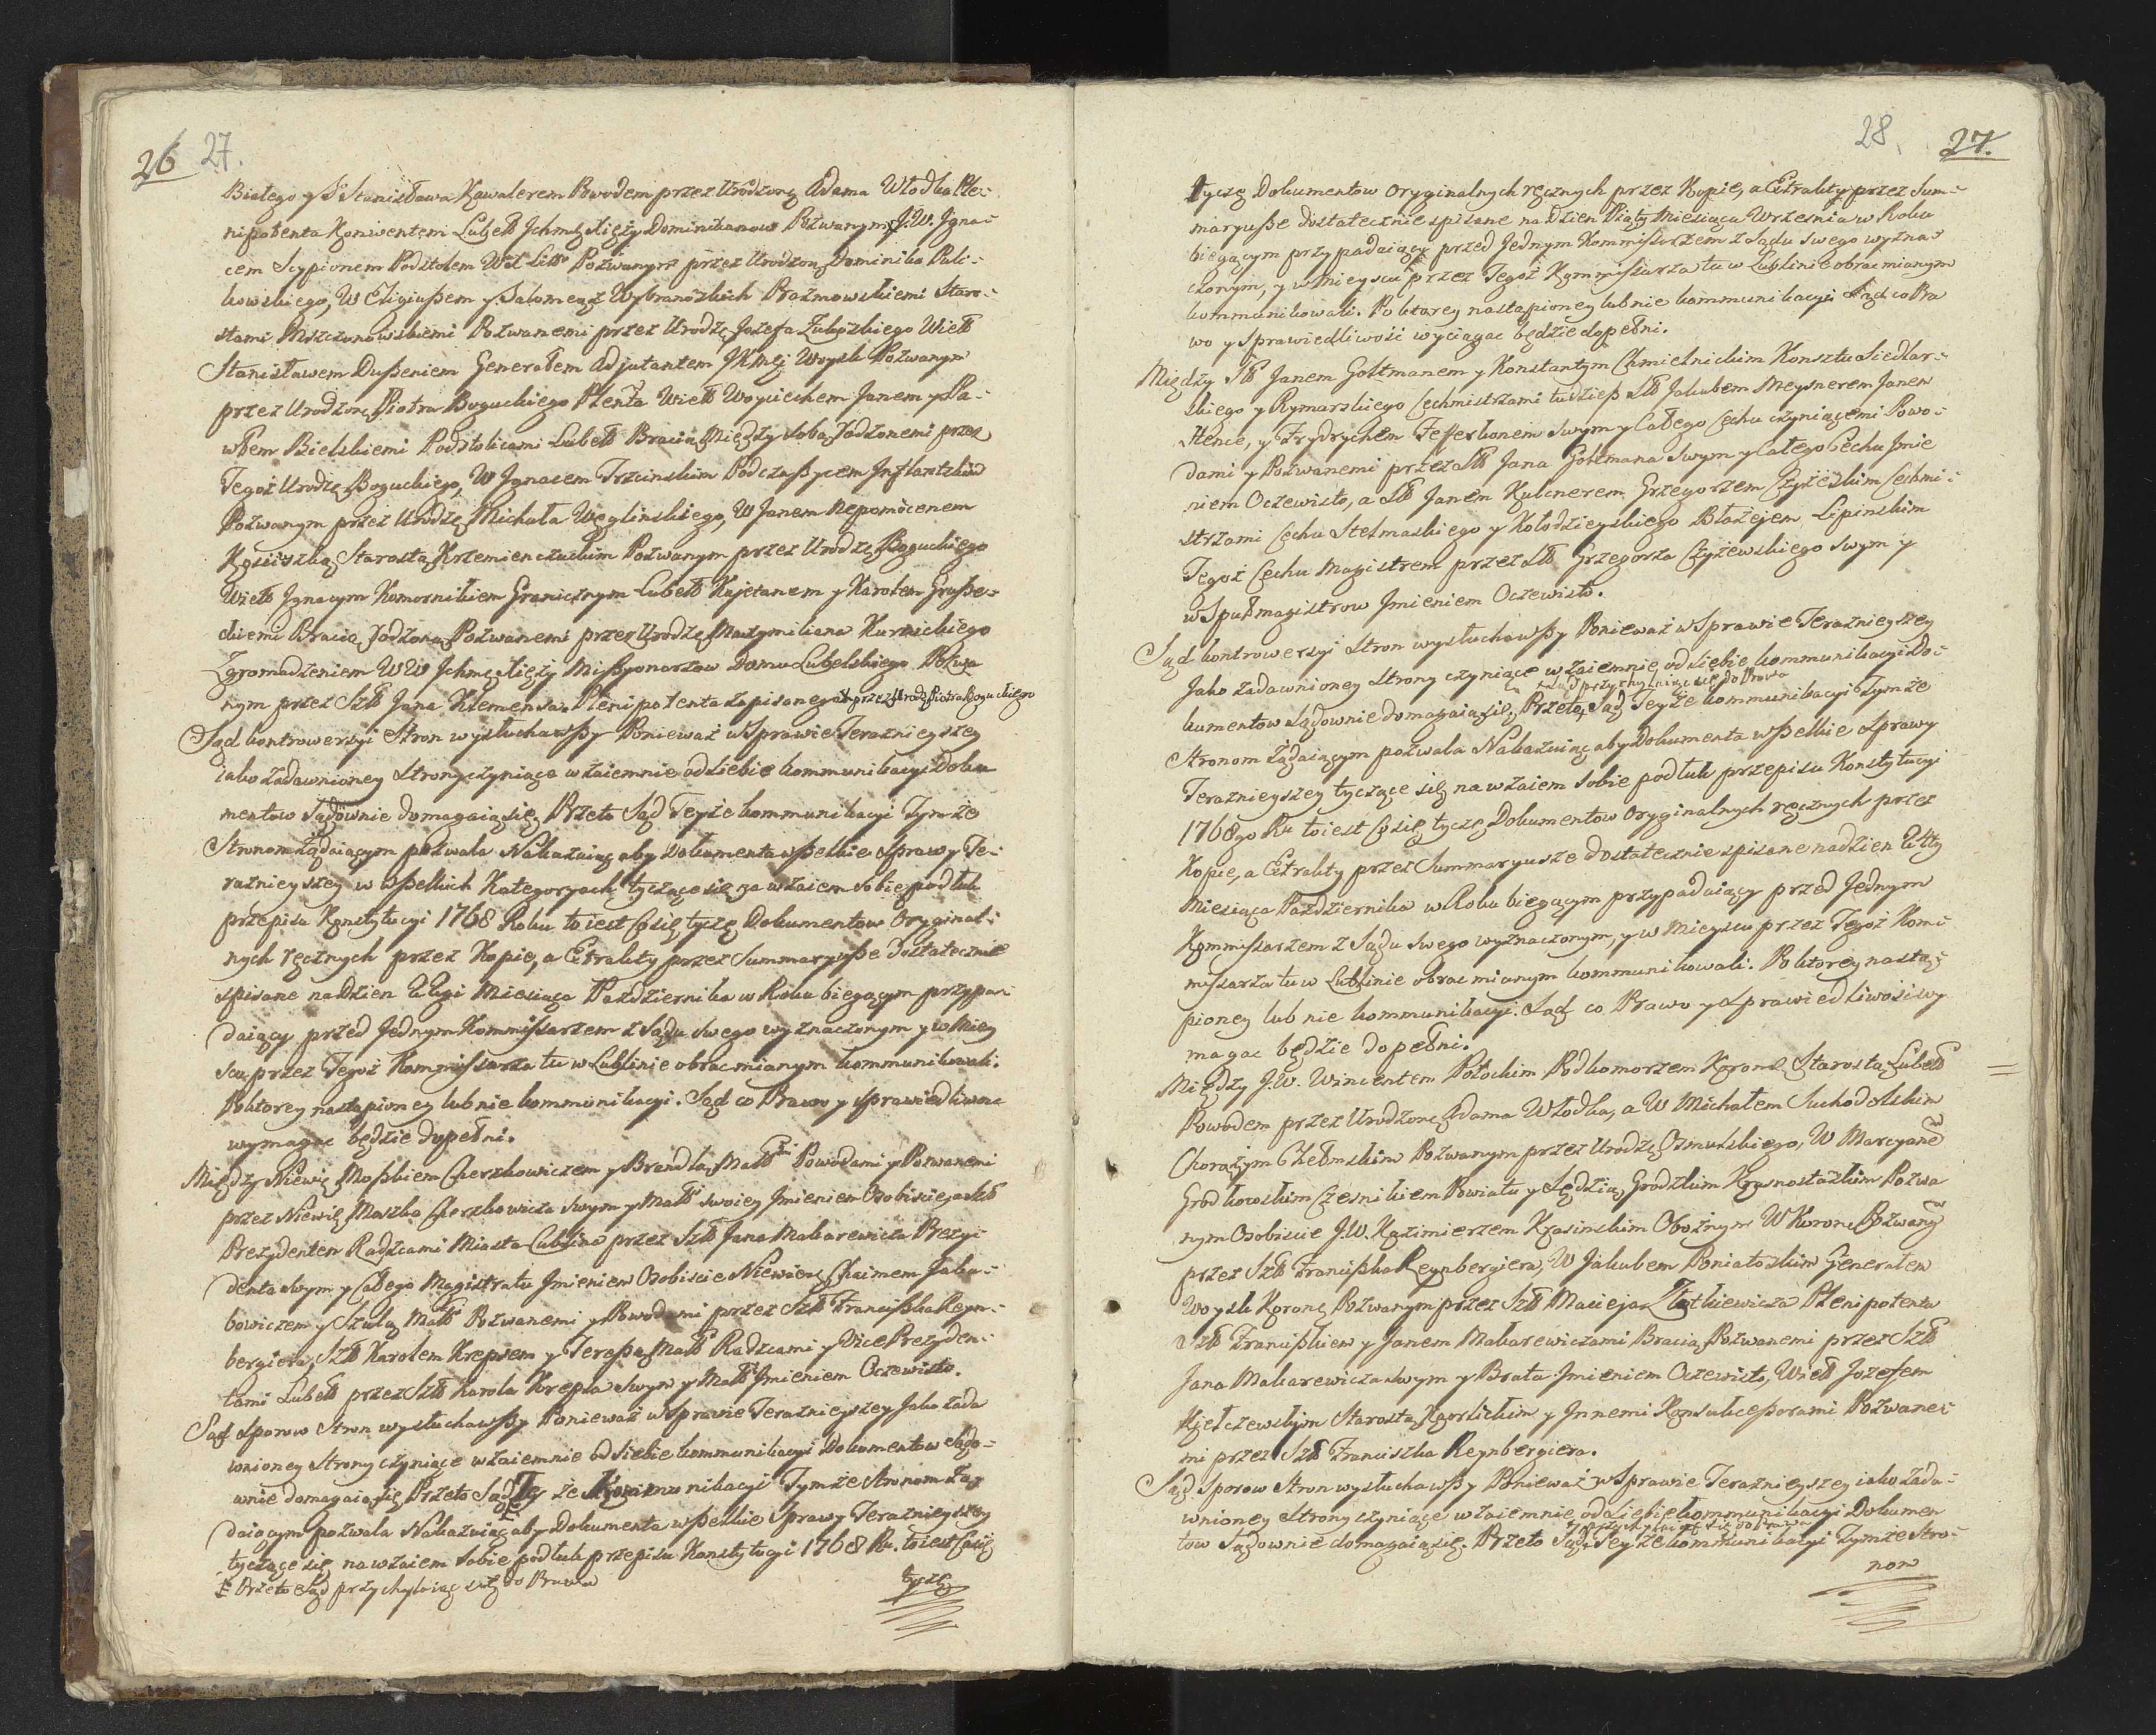 26 27.
Białego y S Stanisława Kawalerem Powodem przez Urodzonę Adama Włodka Ple-
nipotenta Konwentem Lubell Jchmć Xięży Dominikanow Pozwanym J.W. Igna-
cem Scypionem Podstolem Wił Litto Pozwanym przez Urodzonę Dominika Puli-
kowskiego, W Eligiuszem y Salomeą z Wybranowskich Prażmowskiemi Staro-
stami Mszczonowskiemi Pozwanemi przez Urodzę Jozefa Zubozkiego Wielb
Stanisławem Duszeniem Generałem Adjutantem JKMcj Woysk Pozwanym
przez Urodzonę Piotra Boguckiego Plenta Wielb Woyciechem Janem y Pa-
włem Bielskiemi Podstolicami Lubell Bracią Między sobą Jodzonemi przez
Tegoż Urodzę Boguckiego, W Ignacem Trzcinskim Podczaszycem Inflantskim
Pozwanym przez Urodzę Michała Węglinskiego, W Janem Nepomocenem
Kościszką Starostą Krzemienczuckim Pozwanym przez Urodzę Boguckiego
Wielb Ignacym Komornikiem Granicznym Lubell Kajetanem y Karolem Grusze-
ckiemi Bracią Jodzoną Pozwanemi przez Urodzę Maxymiliana Kurnickiego
Zgromadzeniem WW Jchmć Xięży Missyonarzow Domu Lubelskiego Pozwa
nym przez Szlb Jana Klemensa Plenipotenta zapisanego y przez Urodz Piotra Boguckiego
Sąd kontrowersyi Stron wysłuchawszy Ponieważ w Sprawie Teraznieyszey
iako zadawnioney Strony czyniące wzaiemnie od siebie kommunikacyi Doku
mentow Sądownie domagaią się, Przeto Sąd Teyże kommunikacyi Tymże
Stronom żądaiącym pozwala Nakazuiąc aby Dokumenta wszelkie Sprawy Te-
raznieyszey w wszelkich Kategoryach tyczące się na wzaiem sobie podług
przepisu Konstytucyi 1768 Roku to iest Co się tyczę Dokumentow Oryginal-
nych ręcznych przez Kopie, a Extrakty przez Summaryusze dostatecznie
spisane na Dzien Miesiąca Pazdziernika w Roku biegącym przypa-
daiący przed Jednym Kommissarzem z Sądu swego wyznaczonym y w Miey
scu przez Tegoż Kommissarza tu w Lublinie obrac mianym kommunikowali.
Po ktorey nastąpioney lub nie kommunikacyi. Sąd co Prawo y Sprawiedliwosc
wymagac będzie dopełni.
Między Niewię Moszkiem Cherzkowiczem y Brandlą Małż Powodami y Pozwanemi
przez Niewię Moszka Cherzkowicza swym y Małż swoiey Jmieniem Osobiscie, a Szlb
Prezydentem Radzcami Miasta Lublina przez Szlb Jana Makarewicza Prezy-
denta swym y Całego Magistratu Jmieniem Osobiscie Niewięm Chaimem Jaku-
bowiczem y Szulą Małż Pozwanemi y Powodami przez Szlb Franciszka Reyn-
bergiera, Szlb Karolem Krepsem y Teressą Małż Radzcami y Vice Prezyden-
tami Lubell przez Szlb Karola Krepsa swym y Małż Jmieniem Oczewisto.
Sąd Sporow Stron wysłuchawszy Ponieważ w Sprawie Teraznieyszey Jako zada
wnioney Strony czyniące wzaiemnie od siebie kommunikacyi Dokumentow Sądo-
wnie domagaią się Przeto Sąd Teyże Kommunikacyi Tymże Stronom żą-
daiącym pozwala Nakazuiąc aby Dokumenta wszelkie Sprawy Teraznieyszey
tyczące się na wzaiem sobie podług przepisu Konstytucyi 1768 Ru. to iest Co się
Przeto Sąd przychylaiąc się do Prawa
tyczę
28. 27.
tyczę Dokumentow Oryginalnych ręcznych przez Kopie, a Extrakty przez Sum-
maryusze dostatecznie spisane na Dzien Piąty Miesiąca Wrzesnia w Roku
biegącym przypadaiący przed Jednym Kommissarzem z Sądu swego wyzna-
czonym, y w Mieyscu przez Tegoż Kommissarza tu w Lublinie obrac mianym
kommunikowali. Po ktorey nastąpioney lub nie kommunikacyi Sąd co Pra
wo y Sprawiedliwość wyciągac będzie dopełni.
Między Slb Janem Goltmanem y Konstantym Chmielnickim Konsztu Siedlar-
skiego y Rymarskiego Cechmistrzami tudziesz Slb Jakubem Meysnerem Janem
Hence, y Frydrychem Fefferkonem swym y Całego Cechu czyniącemi Powo-
dami y Pozwanemi przez Slb Jana Goltmana swym y Całego Cechu Jmie
niem Oczewisto, a Slb Janem Kulcnerem Grzegorzem Czyżeskim Cechmi-
strzami Cechu Stelmaskiego y Kołodzieyskiego Błażejem Lipinskim
Tegoż Cechu Magistrem przez Slb Grzegorza Czyżewskiego swym y
wSpułmagistrow Jmieniem Oczewisto.
Sąd kontrowersyi Stron wysłuchawszy Ponieważ w Sprawie Teraznieyszey
Jako zadawnioney Strony czyniące wzaiemnie od siebie kommunikacyi Do-
Sąd przychylaiąc się do Prawa
kumentow Sądownie domagaią się, Przeto Sąd Teyże kommunikacyi Tymże
Stronom żądaiącym pozwala Nakazuiąc aby Dokumenta wszelkie Sprawy
Teraznieyszey tyczące się na wzaiem sobie podług przepisu Konstytucyi
1768go Ru to iest Co się tyczę Dokumentow Oryginalnych ręcznych przez
Kopie, a Extrakty przez Summaryusze dostatecznie spisane na dzien
Miesiąca Pazdziernika w Roku biegącym przypadaiący przed Jednym
Kommissarzem z Sądu swego wyznaczonym, y w Mieyscu przez Tegoż Kom-
missarza tu w Lublinie obrac mianym kommunikowali. Po ktorey nastą-
pioney lub nie kommunikacyi. Sąd co Prawo y Sprawiedliwość wy
magac będzie dopełni.
Między J.W. Wincentem Potockim Podkomorzem Koronē Starostą Lubell
Powodem przez Urodzonę Adama Włodka, a W Michałem Suchodolskim
Chorążym Chełmskim Pozwanym przez Urodzę Osmulskiego, W Marcyanē
Grodkowskim Czesnikiem Powiatu y Sędzią Grodzkim Krasnostazkim Pozwa
nym Osobiscie J.W. Kazimierzem Krasinskim Obożnym W Koronē Pozwany
przez Szlb Franciszka Reynbergiera, W Jakubem Poniatoskim Generałem
Woysk Koronē Pozwanym przez Szlb Macieja Złotkiewicza Plenipotenta
Szlb Franciszkiem y Janem Makarewiczami Bracią Pozwanemi przez Szlb
Jana Makarewicza swym y Brata Jmieniem Oczewisto, Wielb Jozefem
Kiełczewskim Starostą Kgorlickim y Innemi Konsukcessorami Pozwane-
mi przez Szlb Franciszka Reynbergiera.
Sąd Sporow Stron wysłuchawszy Ponieważ w Sprawie Teraznieyszey iako zada-
wnioney Strony czyniące wzaiemnie od siebie kommunikacyi Dokumen
przychylaiąc się do Prawa
tow Sądownie domagaią się. Przeto Sąd Teyże kommunikacyi Tymże Stro-
nom